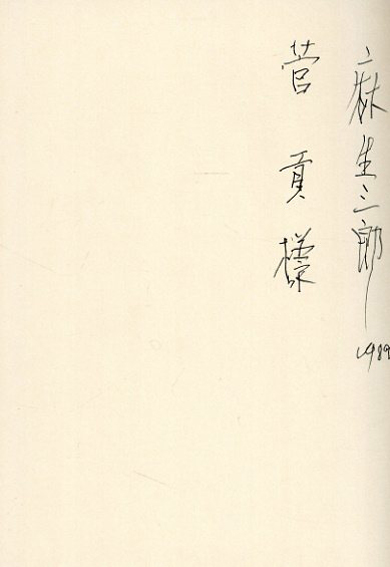 麻生三郎 1989
菅貢様